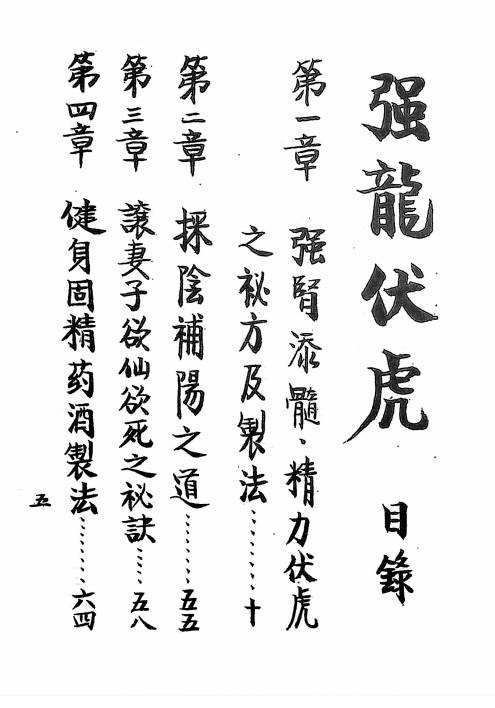 强龍伏虎 目錄
第一章 强腎添髓、精力伏虎
之祕方及製法………十
第二章 採陰補陽之道………五五
第三章 讓妻子欲仙欲死之祕訣……五八
第四章 健身固精药酒製法………六四
五